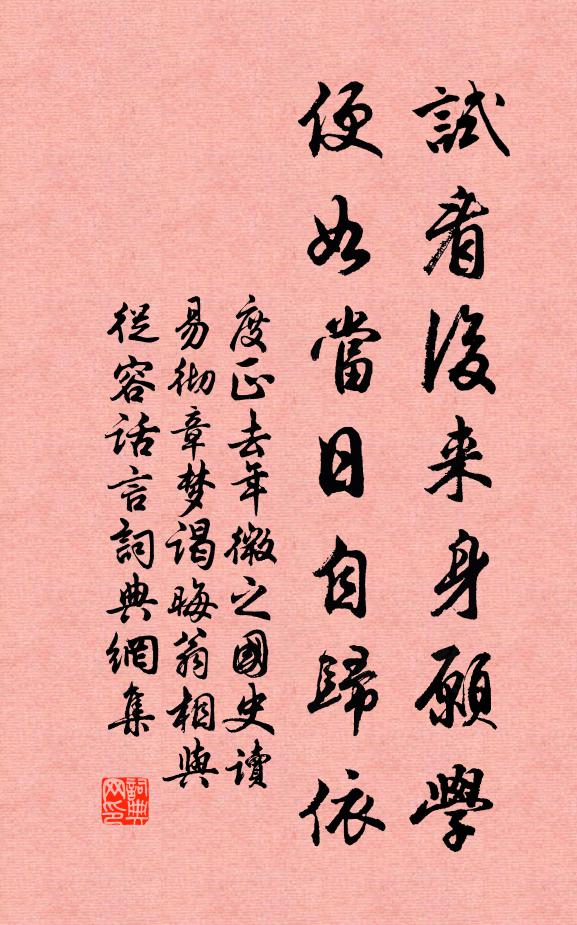 試看後来身願學
便如當日自歸依
度正去年徽之國史讀
易彻章梦谒晦翁相與
從容話言詞典網集
詞典网印